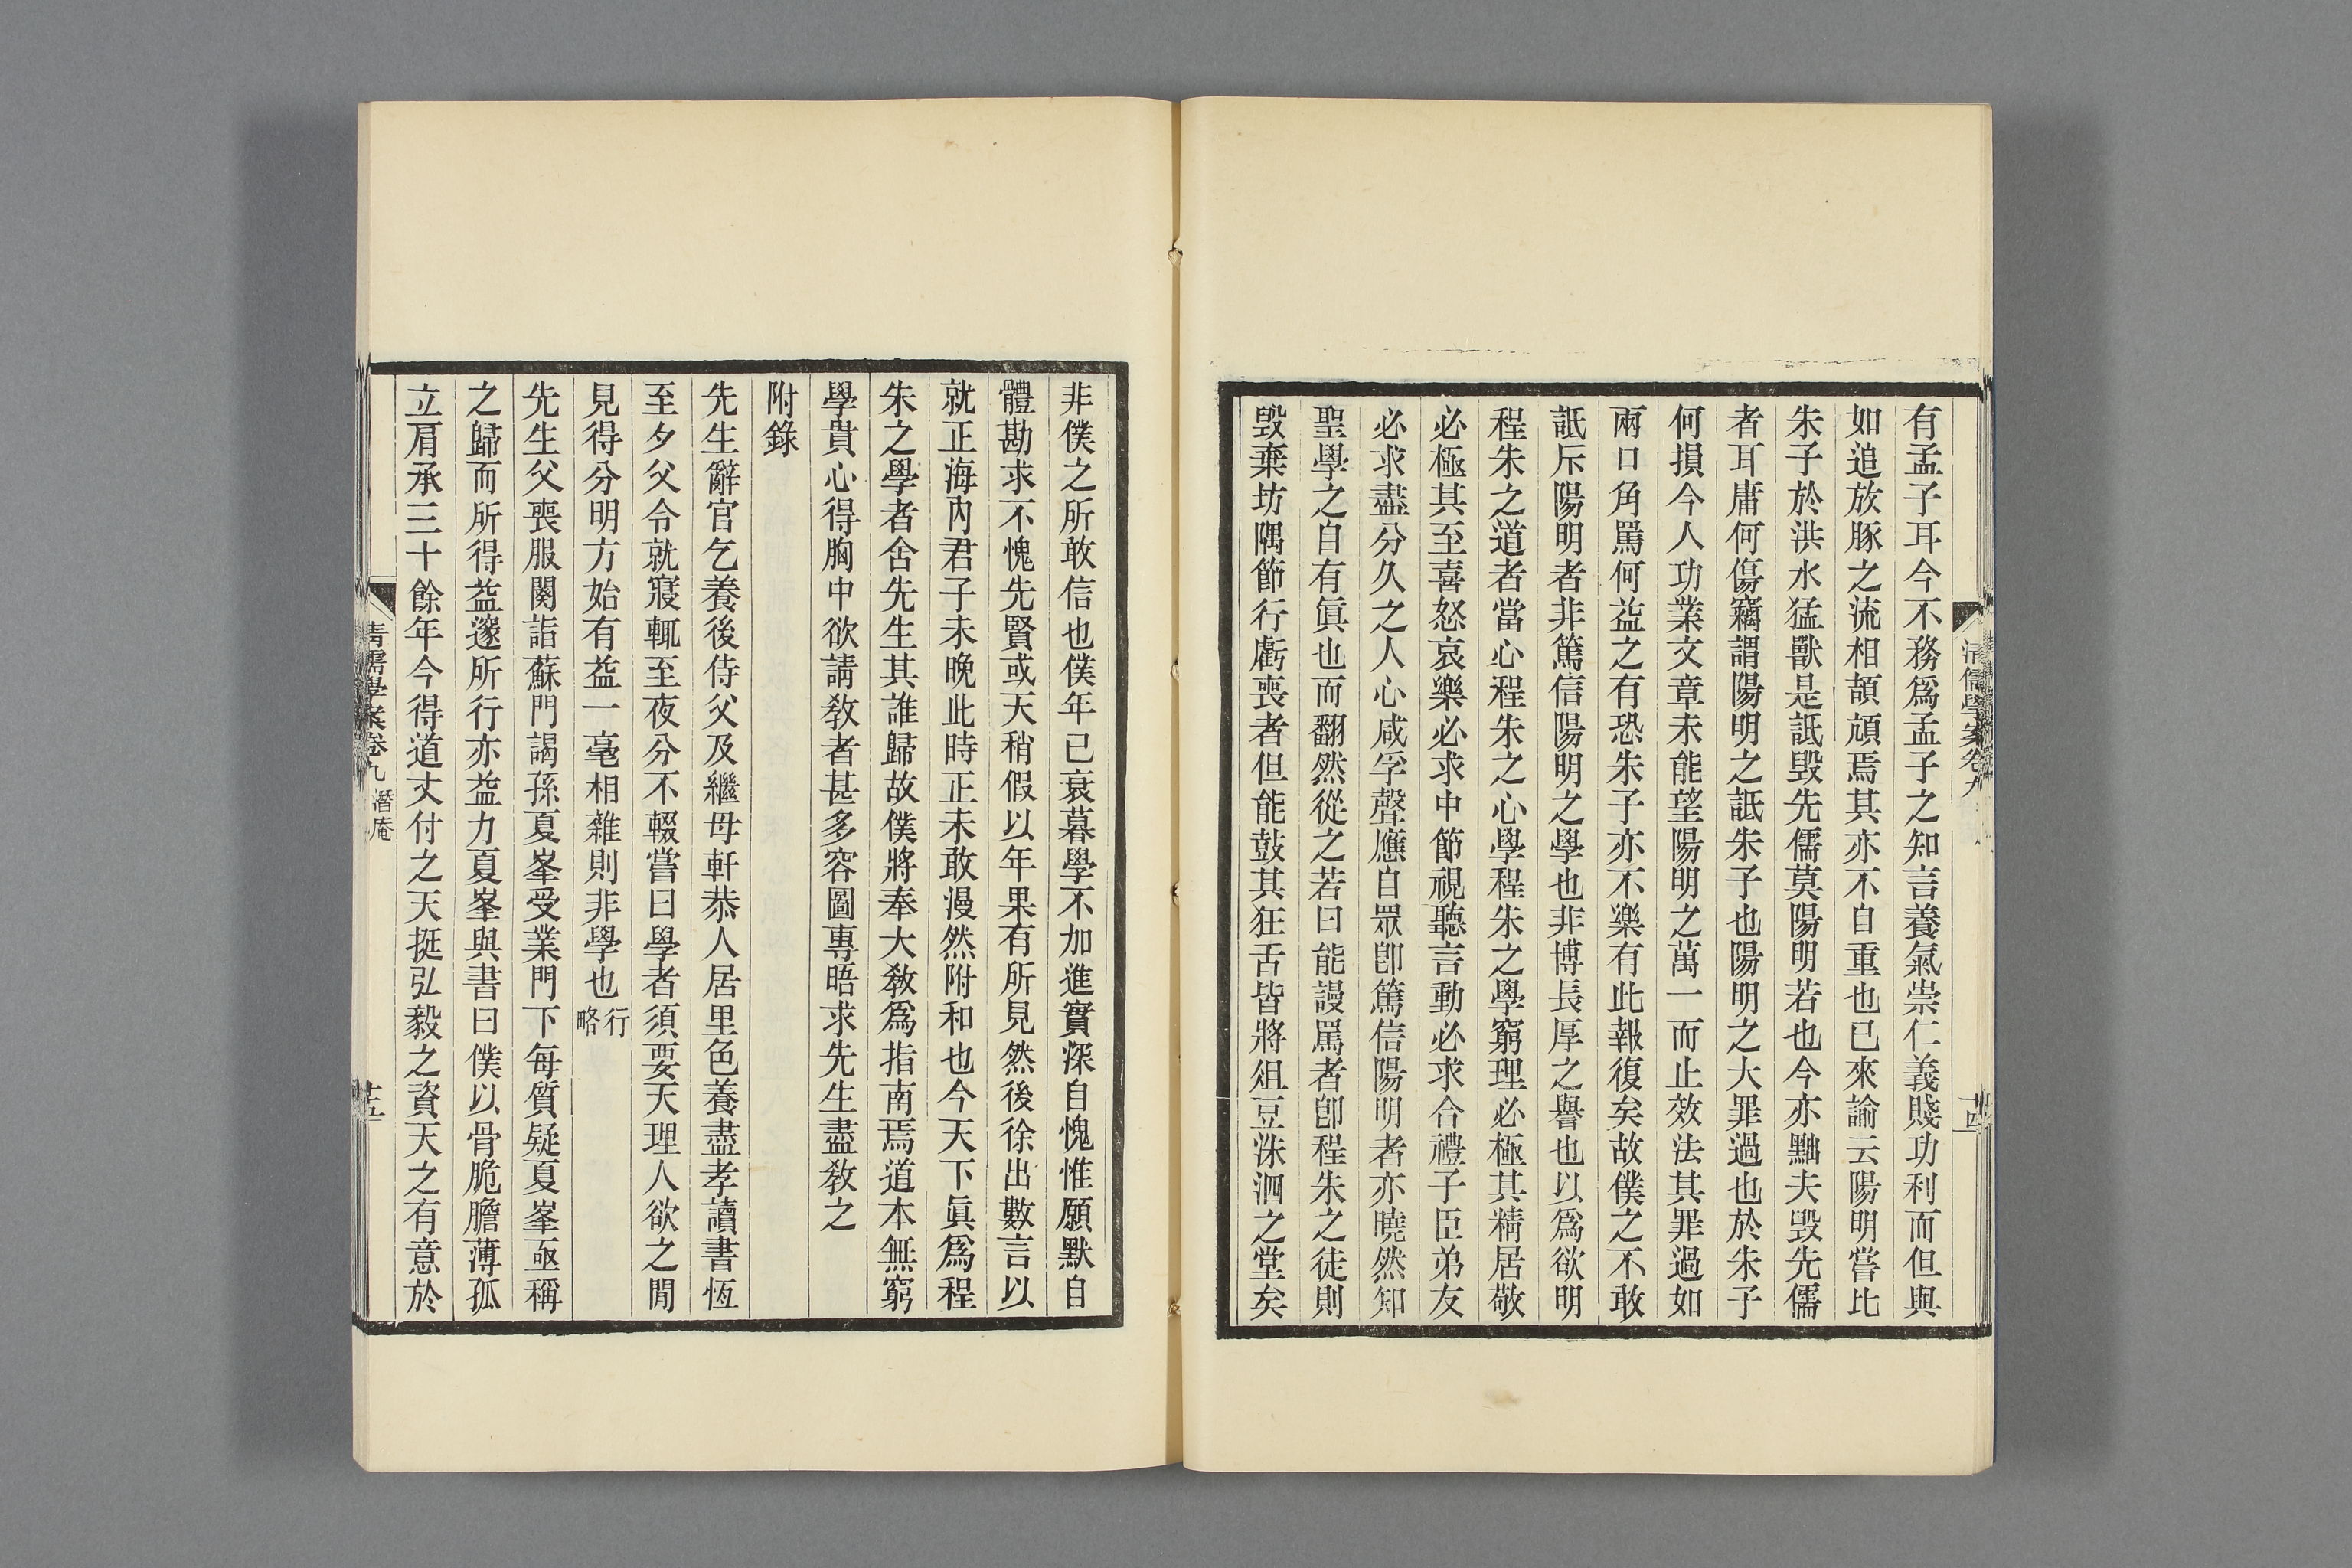 有孟子耳今不務爲孟子之知言養氣崇仁義賤功利而但與
如追放豚之流相頡頏焉其亦不自重也已來諭云陽明嘗比
朱子於洪水猛獸是詆毀先儒莫陽明若也今亦黜夫毀先儒
者耳庸何傷竊謂陽明之詆朱子也陽明之大罪過也於朱子
何損今人功業文章未能望陽明之萬一而止效法其罪過如
兩口角罵何益之有恐朱子亦不樂有此報復矣故僕之不敢
詆斥陽明者非篤信陽明之學也非博長厚之譽也以爲欲明
程朱之道者當心程朱之心學程朱之學窮理必極其精居敬
必極其至喜怒哀樂必求中節視聽言動必求合禮子臣弟友
必求盡分久之人心咸孚聲應自眾卽篤信陽明者亦曉然知
聖學之自有眞也而翻然從之若曰能謾罵者卽程朱之徒則
毀棄坊隅節行虧喪者但能鼓其狂舌皆將俎豆洙泗之堂矣
清儒學案卷九
十四
非僕之所敢信也僕年已衰暮學不加進實深自愧惟願默自
體勘求不愧先賢或天稍假以年果有所見然後徐出數言以
就正海內君子未晚此時正未敢漫然附和也今天下眞爲程
朱之學者舍先生其誰歸故僕將奉大敎爲指南焉道本無窮
學貴心得胸中欲請敎者甚多容圖專晤求先生盡敎之
附錄
先生辭官乞養後侍父及繼母軒恭人居里色養盡孝讀書恆
至夕父令就寢輒至夜分不輟嘗曰學者須要天理人欲之閒
見得分明方始有益一毫相雜則非學也行略
先生父喪服闋詣蘇門謁孫夏峯受業門下每質疑夏峯亟稱
之歸而所得益邃所行亦益力夏峯與書曰僕以骨脆膽薄孤
立肩承三十餘年今得道丈付之天挺弘毅之資天之有意於
清儒學案卷九 潛庵
十五